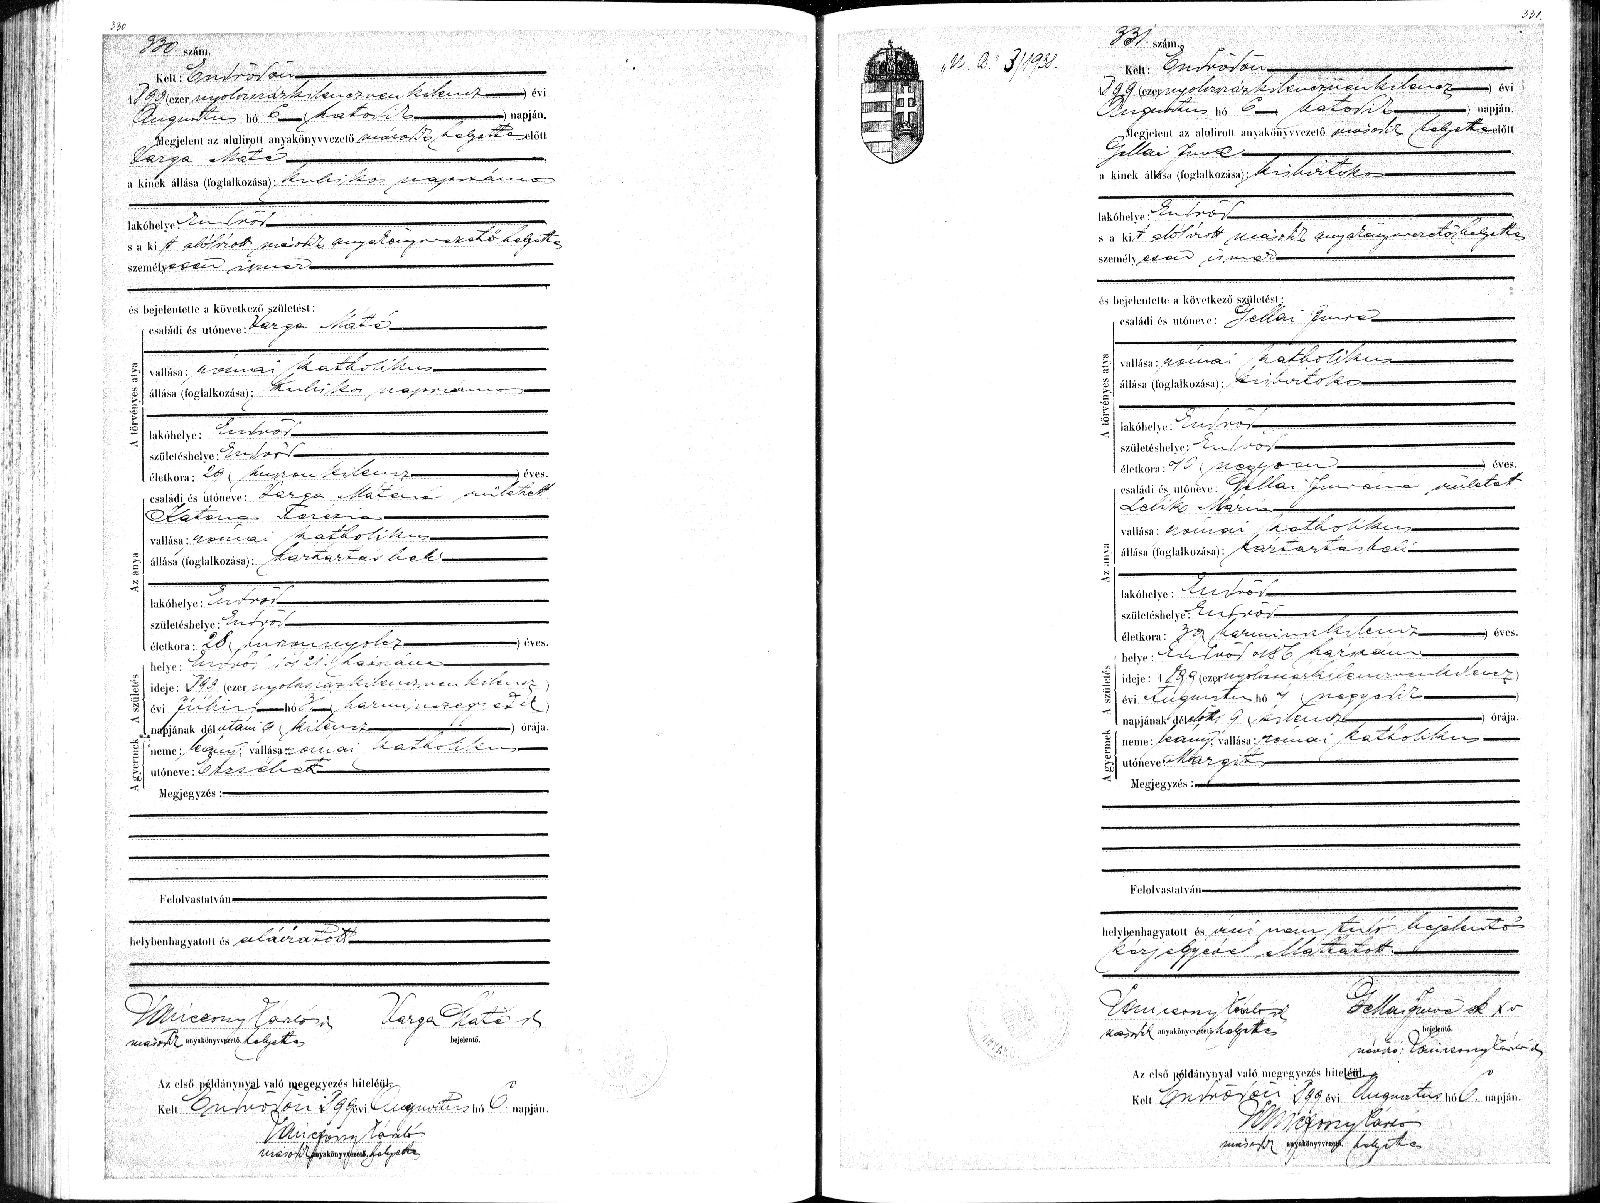 330
330 szám.
Kelt: Endrődön
1899 (ezer nyolczszázkilenczvenkilencz) évi
Augusztus hó 6 (hatodik) napján.
Megjelent az alulirott anyakönyvvezető második helyettes előtt
Varga Máté
a kinek állása (foglalkozása): kubikos napszámos
lakóhelye: Endrőd
s a kit alólirott másodk anyakönyvvezető helyettes
személyesen ismer
és bejelentette a következő születést:
A törvényes atya
családi és utóneve: Varga Máté
vallása: római katholikus
állása (foglalkozása): kubikos napszámos
lakóhelye: Endrőd
születéshelye: Endrőd
életkora: 29 (huszonkilencz) éves.
Az anya
családi és utóneve: Varga Máténé született
Katona Terézia
vallása: római katholikus
állása (foglalkozása): háztartásbeli
lakóhelye: Endrőd
születéshelye: Endrőd
életkora: 28 (huszonnyolcz) éves.
A születés
helye: Endrőd
ideje: 1899 (ezer nyolczszázkilenczvenkilencz)
évi Július hó 31 (harminczegyedik)
napjának délutáni 9 (kilencz) órája.
A gyermek
neme: leány; vallása: római katholikus
utóneve: Erzsébet
Megjegyzés:
Felolvastatván
helybenhagyatott és aláiratott
Varga Máté
második anyakönyvvezető helyettes
bejelentő.
Az első példánynyal való megegyezés hiteléül.
Kelt Endrődön 899 évi Augusztus hó 6. napján.
második anyakönyvvezető helyettes
331.
331 szám.
Kelt: Endrődön
1899 (ezer nyolczszázkilenczvenkilencz) évi
Augusztus hó 6 (hatodik) napján.
Megjelent az alulirott anyakönyvvezető második helyettes előtt
Gellai Imre
a kinek állása (foglalkozása): kisbirtokos
lakóhelye: Endrőd
s a kit alólirott másodk anyakönyvvezető helyettes
személyesen ismer
és bejelentette a következő születést:
A törvényes atya
családi és utóneve: Gellai Imre
vallása: római katholikus
állása (foglalkozása): kisbirtokos
lakóhelye: Endrőd
születéshelye: Endrőd
életkora: 40 (negyven) éves.
Az anya
családi és utóneve: Gellai Imréné született
Mária
vallása: római katholikus
állása (foglalkozása): háztartásbeli
lakóhelye: Endrőd
születéshelye: Endrőd
életkora: 39 (harminczkilencz) éves.
A születés
helye: Endrőd
ideje: 1899 (ezer nyolczszázkilenczvenkilencz)
évi Augusztus hó 4 (negyedik)
napjának délelőtti 9 (kilencz) órája.
A gyermek
neme: leány; vallása: római katholikus
utóneve: Margit
Megjegyzés:
Felolvastatván
helybenhagyatott és irni nem tudó bejelentő
kézjegyével elláttatott
Gellai Imre
második anyakönyvvezető helyettes
bejelentő.
névíró:
Az első példánynyal való megegyezés hiteléül.
Kelt Endrődön 899 évi Augusztus hó 6. napján.
második anyakönyvvezető helyettes